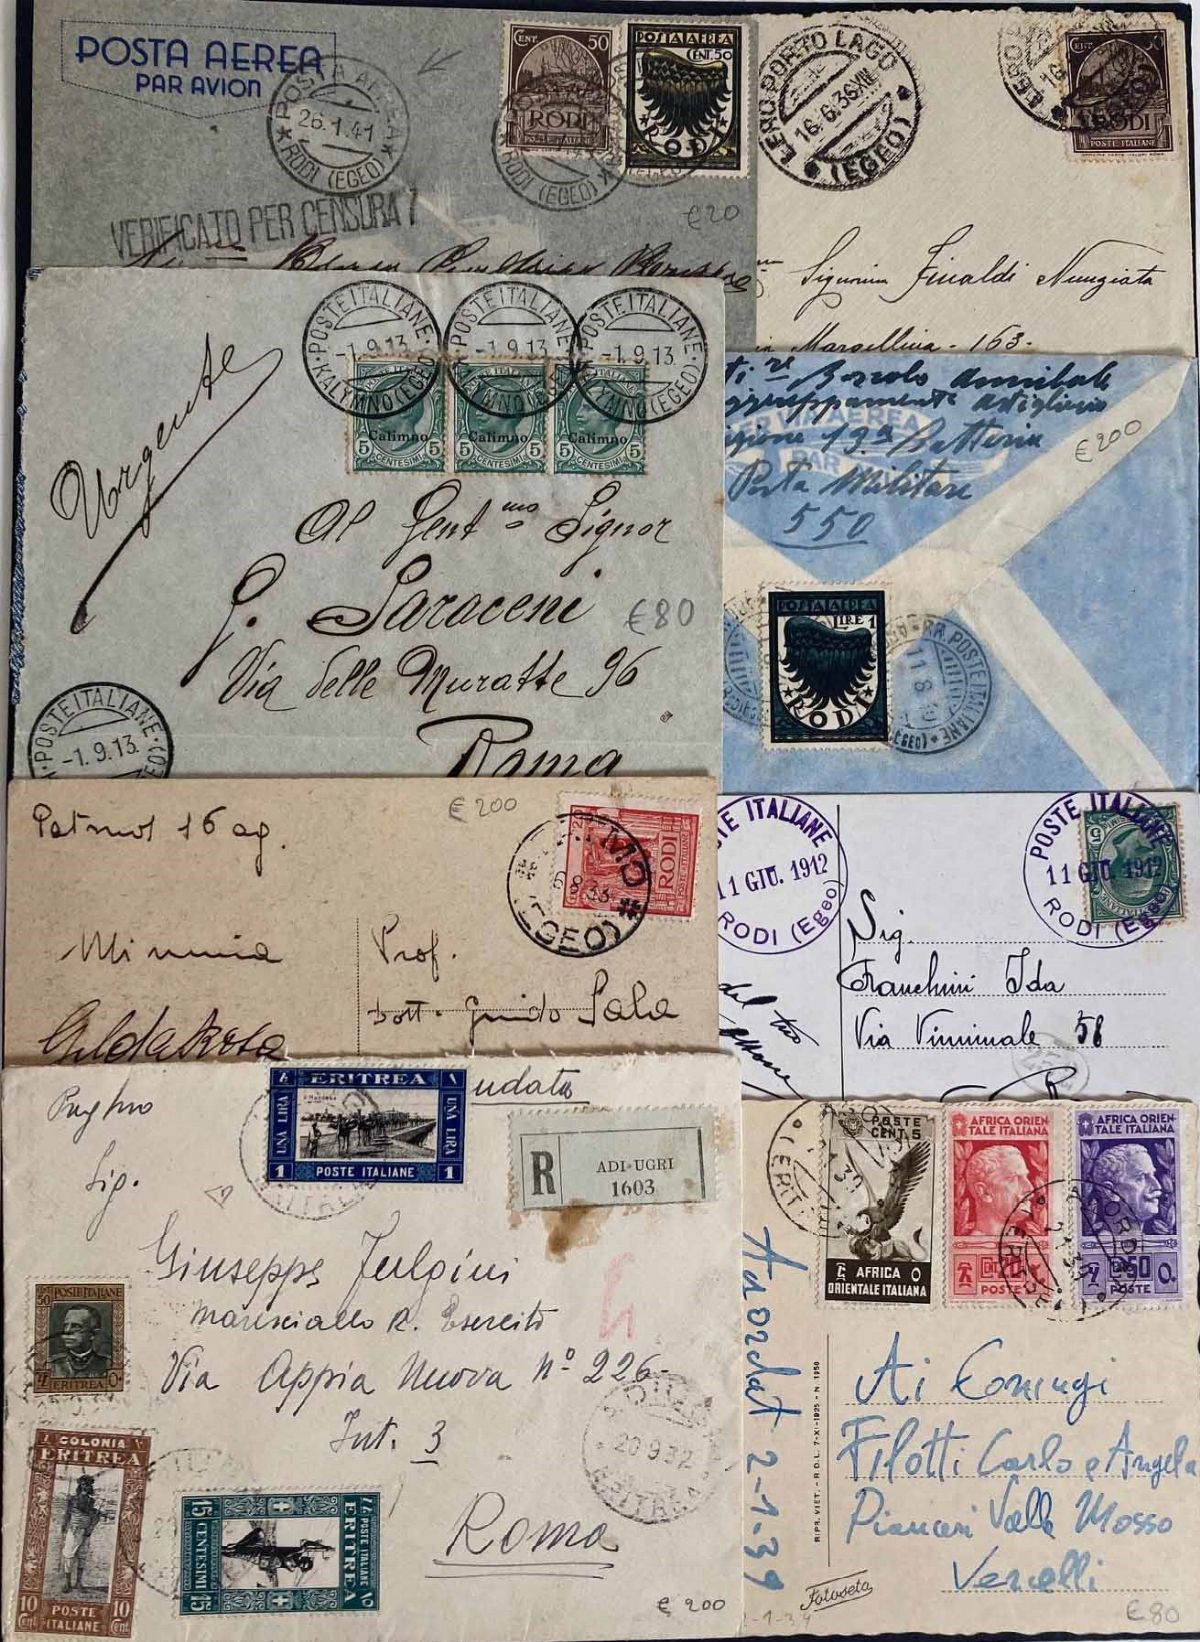 POSTA AEREA
PAR AVION
POSTA AEREA
26.1.41
RODI (EGEO)
VERIFICATO PER CENSURA 7
CENT. 50
RODI
POSTE ITALIANE
POSTA AEREA
CENT. 50
RODI
RODI (EGEO)
€20
LERO PORTO LAGO
16.6.36 XIV
(EGEO)
50
RODI
POSTE ITALIANE
Signorina Finaldi Nunziata
Marsellina - 163-
Urgente
POSTE ITALIANE
-1.9.13.
KALYMNO (EGEO)
POSTE ITALIANE
-1.9.13.
POSTE ITALIANE
-1.9.13.
KALYMNO (EGEO)
Calimno
5 CENTESIMI 5
Calimno
5 CENTESIMI 5
Calimno
5 CENTESIMI 5
Al Gent mo Signor
G. Saraceni
€80
Via delle Muratte 96
Roma
POSTE ITALIANE
-1.9.13.
Annibale
13a Batteria
€200
VIA AEREA
PAR AVION
Posta Militare
550
POSTA AEREA
LIRE 1
RODI
RR. POSTE ITALIANE
Patmos 16 ag.
€200
RODI
(EGEO)
Prof.
Dott. Guido Sala
Gilda
POSTE ITALIANE
11 GIU. 1912
RODI (Egeo)
POSTE ITALIANE
11 GIU. 1912
RODI (Egeo)
5
Sig.
Franchini Ida
Via Viminale 58
del tuo
Sig.
ERITREA
UNA LIRA
UNA LIRA
1 POSTE ITALIANE 1
R
ADI-UGRI
1603
Giuseppe Fulgini
maresciallo R. Esercito
Via Appia Nuova n° 226-
Int. 3
Roma
20.9.32
ERITREA
€200
50 POSTE ITALIANE
ERITREA
COLONIA
ERITREA
10 Cent. POSTE ITALIANE 10 Cent.
POSTE ITALIANE
ERITREA
15 CENTESIMI 15
POSTE
CENT. 5
AFRICA
ORIENTALE ITALIANA
AFRICA ORIEN-
TALE ITALIANA
POSTE
AFRICA ORIEN-
TALE ITALIANA
50
POSTE
Agordat 2-1-39
Ai Coniugi
Filotti Carlo e Angela
Valle Mosso
Vercelli
RIPR. VIET. - R.D.L. 7-XI-1925 - N. 1950
Fotoseta
€80